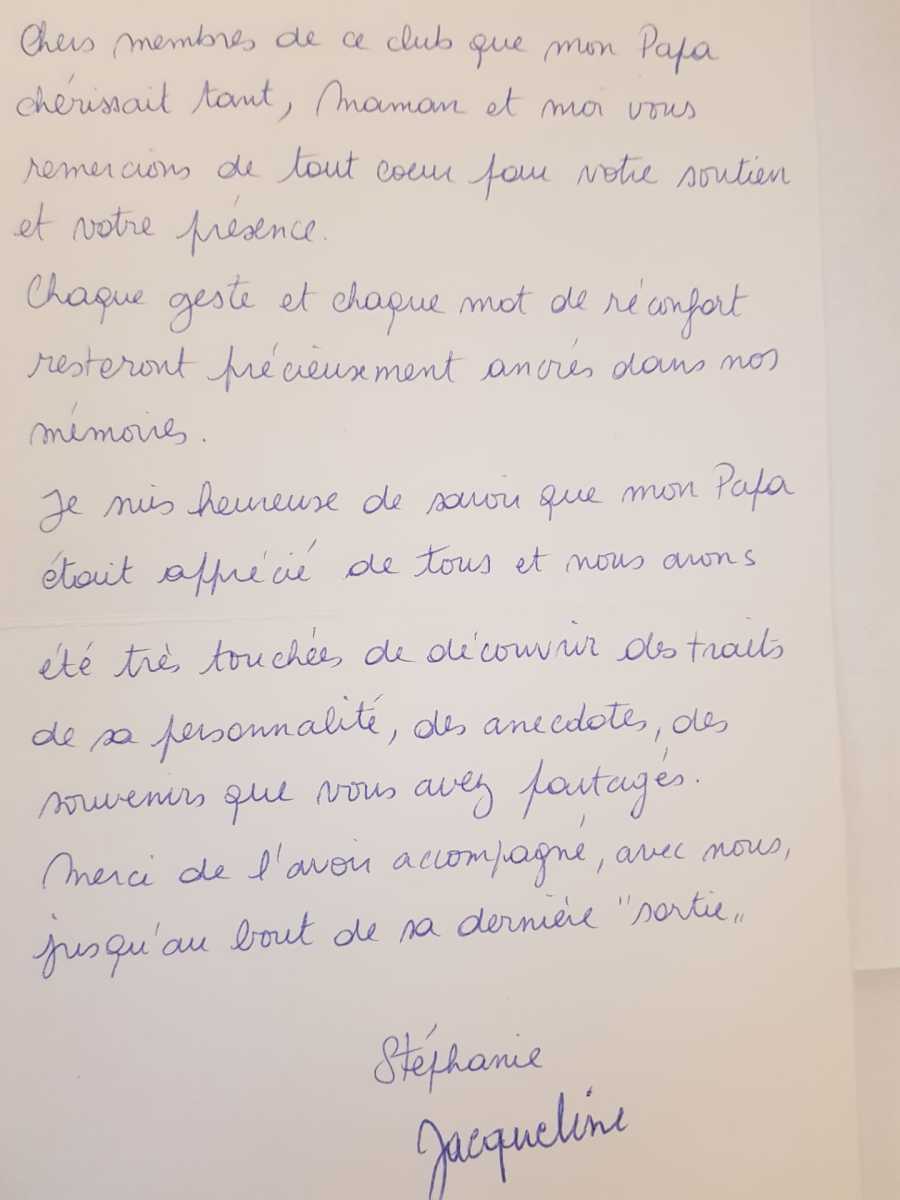 Chers membres de ce club que mon Papa
chérissait tant, Maman et moi vous
remercions de tout coeur pour votre soutien
et votre présence.
Chaque geste et chaque mot de réconfort
resteront précieusement ancrés dans nos
mémoires.
Je suis heureuse de savoir que mon Papa
était apprécié de tous et nous avons
été très touchées de découvrir des traits
de sa personnalité, des anecdotes, des
souvenirs que vous avez partagés.
Merci de l'avoir accompagné, avec nous,
jusqu'au bout de sa dernière "sortie„
Stéphanie
Jacqueline